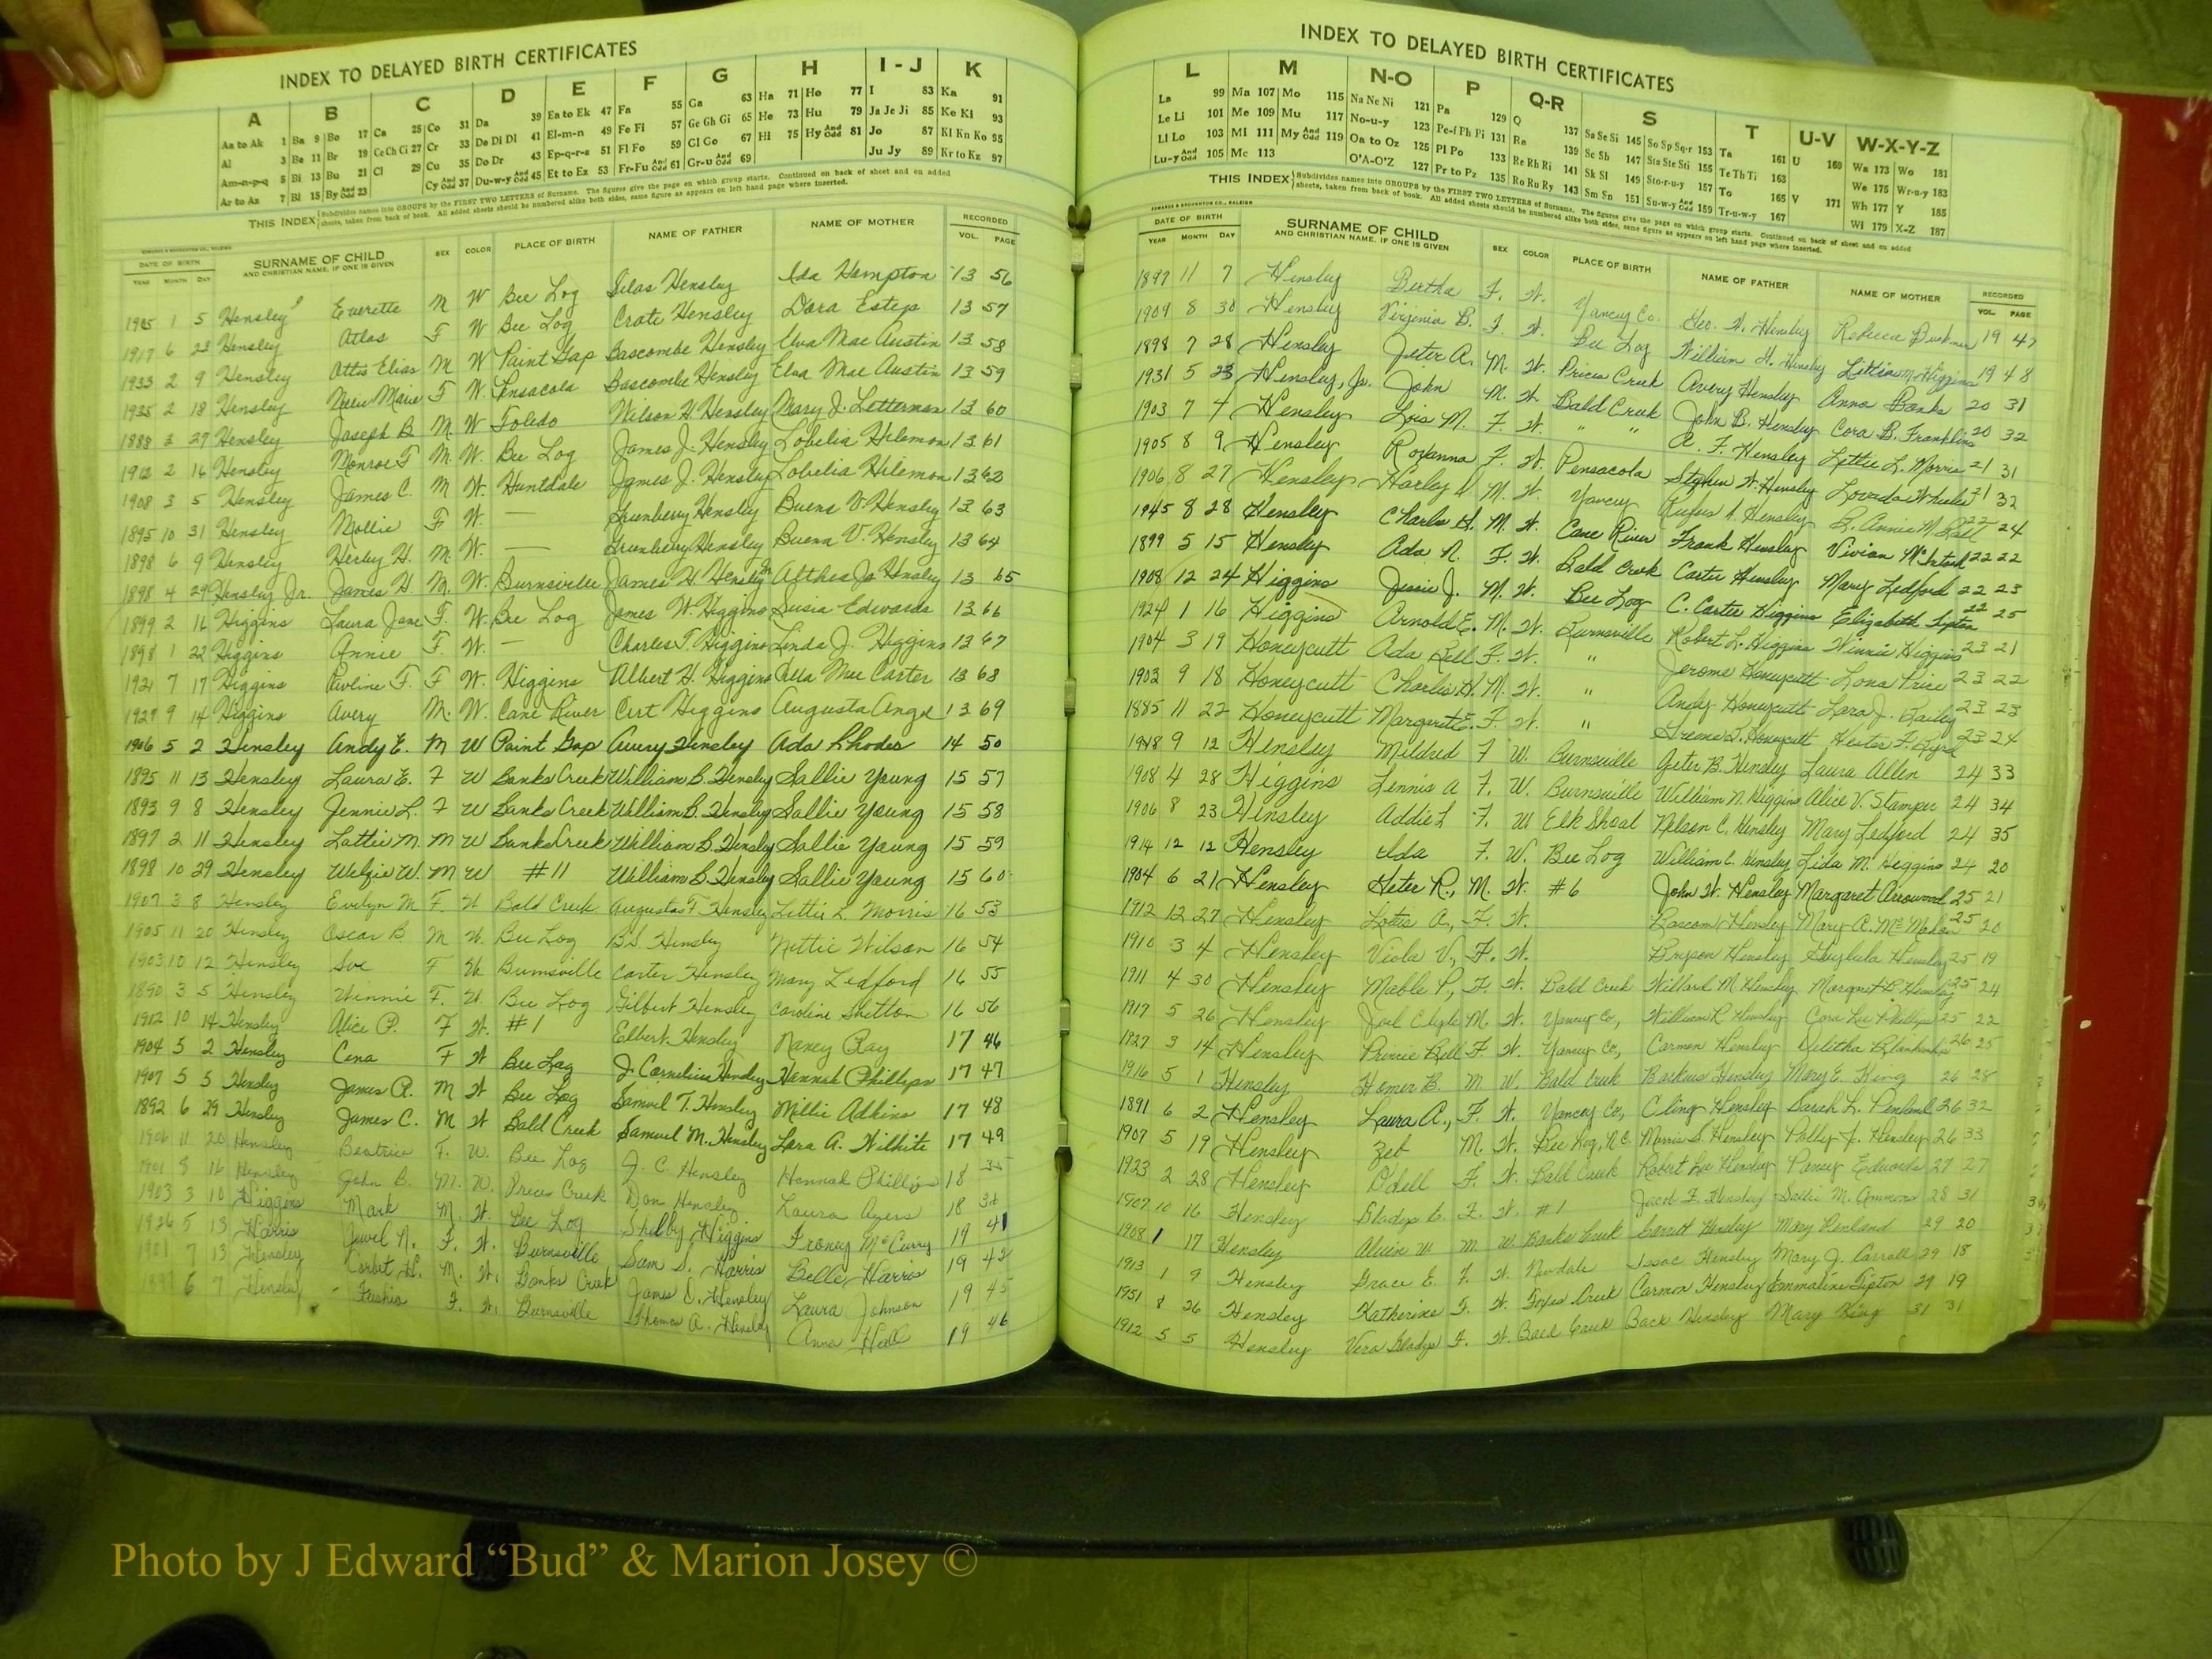 INDEX TO DELAYED BIRTH CERTIFICATES
A B C D E F G H I - J K
Aa to Ak 1 Ba 9 Bo 17 Ca 25 Co 31 Da 39 Ea to Ek 47 Fa 55 Ga 63 Ha 71 Ho 77 I 83 Ka 91
Al 3 Be 11 Br 19 Ce Ch Ci 27 Cr 33 De Di Dl 41 El-m-n 49 Fe Fi 57 Ge Gh Gi 65 He 73 Hu 79 Ja Je Ji 85 Ke Ki 93
Am-n-p-q 5 Bi 13 Bu 21 Cl 29 Cu 35 Do Dr 43 Ep-q-r-s 51 Fl Fo 59 Gl Go 67 Hi 75 Hy And Odd 81 Jo 87 Kl Kn Ko 95
Ar to Az 7 Bl 15 By And Odd 23 Cy And Odd 37 Du-w-y And Odd 45 Et to Ez 53 Fr-Fu And Odd 61 Gr-u And Odd 69 Ju Jy 89 Kr to Kz 97
THIS INDEX Subdivides names into GROUPS by the FIRST TWO LETTERS of Surname. The figures give the page on which group starts. Continued on back of sheet and on added
sheets, taken from back of book. All added sheets should be numbered alike both sides, same figure as appears on left hand page where inserted.
DATE OF BIRTH SURNAME OF CHILD SEX COLOR PLACE OF BIRTH NAME OF FATHER NAME OF MOTHER RECORDED
YEAR MONTH DAY AND CHRISTIAN NAME, IF ONE IS GIVEN VOL. PAGE
1905 1 5 Hensley Everette M W Bee Log Silas Hensley Ida Hampton 13 56
1917 6 23 Hensley Atlas F W Bee Log Crate Hensley Dora Estep 13 57
1933 2 9 Hensley Ottis Elias M W Paint Gap Bascombe Hensley Elva Mae Austin 13 58
1935 2 18 Hensley Marie F W. Pensacola Bascombe Hensley Elva Mae Austin 13 59
1888 2 27 Hensley Joseph B M. W Toledo Wilson H Hensley Mary J. Letterman 13 60
1912 2 16 Hensley Monroe F M. W. Bee Log James J. Hensley Lobelia Hilemon 13 61
1908 3 5 Hensley James C. M W. Huntdale James J. Hensley Lobelia Hilemon 13 62
1895 10 31 Hensley Mollie F W. — Greenberry Hensley Buena V. Hensley 13 63
1898 6 9 Hensley Herley H. M. W. — Greenberry Hensley Buena V. Hensley 13 64
1898 4 29 Hensley Jr. James H. M. W. Burnsville James H Hensley Sr. Althea Jo Hensley 13 65
1899 2 16 Higgins Laura Jane F. W. Bee Log James W. Higgins Susie Edwards 13 66
1898 1 22 Higgins Annie F. W. — Charles T. Higgins Linda J. Higgins 13 67
1921 7 17 Higgins Pauline F. F W. Higgins Albert H. Higgins Alla Mae Carter 13 68
1929 9 14 Higgins Avery M. W. Cane River Curt Higgins Augusta Angel 13 69
1906 5 2 Hensley Andy E. M W Paint Gap Avery Hensley Ada Rhodes 14 50
1895 11 13 Hensley Laura E. F W Banks Creek William B. Hensley Sallie Young 15 57
1893 9 8 Hensley Jennie L. F W Banks Creek William B. Hensley Sallie Young 15 58
1897 2 11 Hensley Lattie M. M W Banks Creek William B. Hensley Sallie Young 15 59
1898 10 29 Hensley Welzie W. M W #11 William B. Hensley Sallie Young 15 60
1907 3 8 Hensley Evelyn M F. W. Bald Creek Augustas F. Hensley Lettie L. Morris 16 53
1905 11 20 Hensley Oscar B. M W. Bee Log B.S. Hensley Nettie Wilson 16 54
1903 10 12 Hensley Sue F W Burnsville Carter Hensley Mary Ledford 16 55
1890 3 5 Hensley Winnie F. W. Bee Log Gilbert Hensley Caroline Shelton 16 56
1912 10 14 Hensley Alice P. F W. #1 Elbert Hensley Nancy Ray 17 46
1904 5 2 Hensley Cena F W Bee Log J. Cornelius Hensley Hannah Phillips 17 47
1907 5 5 Hensley James R. M W Bee Log Samuel T. Hensley Millie Adkins 17 48
1892 6 29 Hensley James C. M W Bald Creek Samuel M. Hensley Lara A. Wilhite 17 49
1906 11 20 Hensley Beatrice F. W. Bee Log J. C. Hensley Hannah Phillips 18
1901 8 16 Hensley John B. M. W. Prices Creek Don Hensley Laura Ayers 18
1903 3 10 Higgins Mark M. W. Bee Log Shelby Higgins Froney McCurry 19 41
1926 5 13 Harris Jewel N. F. W. Burnsville Sam S. Harris Belle Harris 19 42
1901 7 13 Hensley Corbet H. M. W. Banks Creek James D. Hensley Laura Johnson 19 45
6 7 Hensley F. W. Burnsville Thomas A. Hensley Anna Hall 19 46
INDEX TO DELAYED BIRTH CERTIFICATES
L M N-O P Q-R S T U-V W-X-Y-Z
La 99 Ma 107 Mo 115 Na Ne Ni 121 Pa 129 Q 137 Sa Se Si 145 So Sp Sq-r 153 Ta 161 U 169 Wa 173 Wo 181
Le Li 101 Me 109 Mu 117 No-u-y 123 Pe-f Ph Pi 131 Ra 139 Sc Sh 147 Sta Ste Sti 155 Te Th Ti 163 We 175 Wr-u-y 183
Ll Lo 103 Mi 111 My And Odd 119 Oa to Oz 125 Pl Po 133 Re Rh Ri 141 Sk Sl 149 Sto-r-u-y 157 To 165 V 171 Wh 177 Y 185
Lu-y And Odd 105 Mc 113 O'A-O'Z 127 Pr to Pz 135 Ro Ru Ry 143 Sm Sn 151 Su-w-y And Odd 159 Tr-u-w-y 167 Wi 179 X-Z 187
THIS INDEX Subdivides names into GROUPS by the FIRST TWO LETTERS of Surname. The figures give the page on which group starts. Continued on back of sheet and on added
sheets, taken from back of book. All added sheets should be numbered alike both sides, same figure as appears on left hand page where inserted.
DATE OF BIRTH SURNAME OF CHILD SEX COLOR PLACE OF BIRTH NAME OF FATHER NAME OF MOTHER RECORDED
YEAR MONTH DAY AND CHRISTIAN NAME, IF ONE IS GIVEN VOL. PAGE
1897 11 7 Hensley Bertha F. W. Yancey Co. Geo. W. Hensley Rebecca 19 47
1909 8 30 Hensley Virginia B. F. W. Bee Log William H. Hensley Higgins 19 48
1898 7 28 Hensley Jeter A. M. W. Prices Creek Avery Hensley Anna Banks 20 31
1931 5 23 Hensley, Jr. John M. W. Bald Creek John B. Hensley Cora B. Franklin 20 32
1903 7 4 Hensley Lois M. F. W. " " A. F. Hensley Lettie L. Morris 21 31
1905 8 9 Hensley Rovanna F. W. Pensacola Stephen W. Hensley Wheeler 21 32
1906 8 27 Hensley Harley M. W. Yancey Rufus A. Hensley Annie M. 22 24
1945 8 28 Hensley Charles H. M. W. Cane River Frank Hensley Vivian McIntosh 22 22
1899 5 15 Hensley Ada N. F. W. Bald Creek Carter Hensley Mary Ledford 22 23
1908 12 24 Higgins Jessie J. M. W. Bee Log C. Carter Higgins Elizabeth Tipton 22 25
1924 1 16 Higgins Arnold E. M. W. Burnsville Robert L. Higgins Winnie Higgins 23 21
1904 3 19 Honeycutt Ada Bell F. W. " Jerome Honeycutt Lona Price 23 22
1902 9 18 Honeycutt Charlie H. M. W. " Andy Honeycutt Lara J. Bailey 23 23
1885 11 22 Honeycutt Margaret E. F. W. " Greene T. Honeycutt Hester F. Byrd 23 24
1918 9 12 Hensley Mildred F W. Burnsville Jeter B. Hensley Laura Allen 24 33
1908 4 28 Higgins Lennis A F. W. Burnsville William N. Higgins Alice V. Stamper 24 34
1906 8 23 Hensley Addie L F. W Elk Shoal Nelson C. Hensley Mary Ledford 24 35
1914 12 12 Hensley Ida F. W. Bee Log William C. Hensley Lida M. Higgins 24 20
1904 6 21 Hensley Jeter R., M. W. #6 John W. Hensley Margaret Arrowood 25 21
1912 12 27 Hensley Lotis A., F. W. Bascom Hensley Mary A. McMahan 25 20
1910 3 4 Hensley Viola V., F. W. Bryson Hensley Hensley 25 19
1911 4 30 Hensley Mable P., F. W. Bald Creek Willard M. Hensley Margaret B. Hensley 25 24
1917 5 26 Hensley Joel Clyde M. W. Yancey Co, William R Hensley Cora Lee Phillips 25 22
1927 3 14 Hensley Princie Bell F. W. Yancey Co, Carmon Hensley Delitha Blankenship 26 25
1916 5 1 Hensley Homer B. M W. Bald Creek Barkus Hensley Mary E. King 26 28
1891 6 2 Hensley Laura A., F. W. Yancey Co, Cling Hensley Sarah L. Penland 26 32
1907 5 19 Hensley Zeb M. W. Bee Log, N.C. Morris S. Hensley Polly J. Hensley 26 33
1923 2 28 Hensley Odell F. W. Bald Creek Robert Lee Hensley Pansy Edwards 27 27
1907 10 16 Hensley Gladys C. F. W. #1 Jacob F. Hensley Sallie M. Ammons 28 31
1908 1 17 Hensley Alvin W M W. Banks Creek Garrett Hensley Mary Penland 29 20
1913 1 9 Hensley Grace E. F. W. Newdale Isaac Hensley Mary J. Carroll 29 18
1951 8 26 Hensley Katherine F. W. Foxes Creek Carmon Hensley Emmaline Tipton 29 19
1912 5 5 Hensley Vera Gladys F. W. Bald Creek Back Hensley Mary King 31 31
Photo by J Edward “Bud” & Marion Josey ©